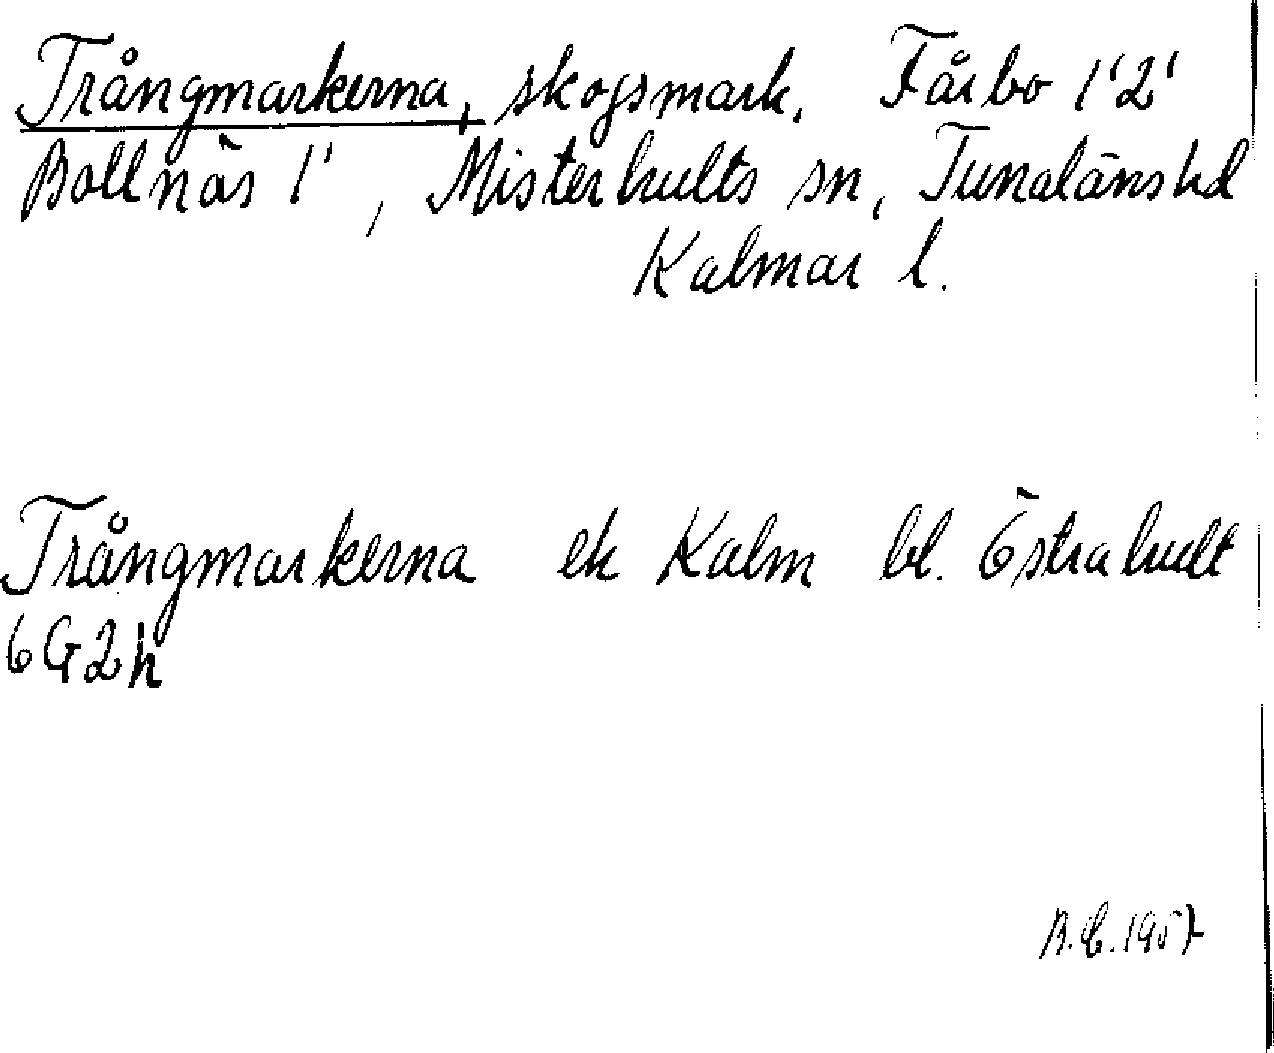 Trångmarkerna, skogsmark. Fårbo 1'2'
Bollnäs 1', Misterhults sn, Tunaläns hd
Kalmar l.
Trångmarkerna ek Kalm bl. Östrahult
6G2h
B.C. 1957